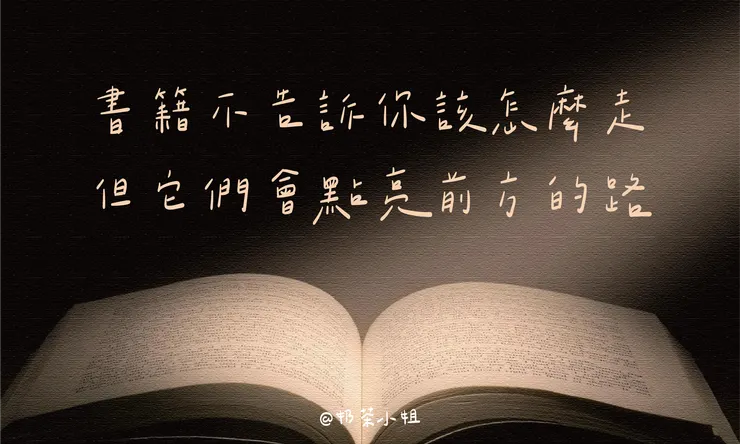 書籍不告訴你該怎麼走
但它們會點亮前方的路
@奶茶小姐